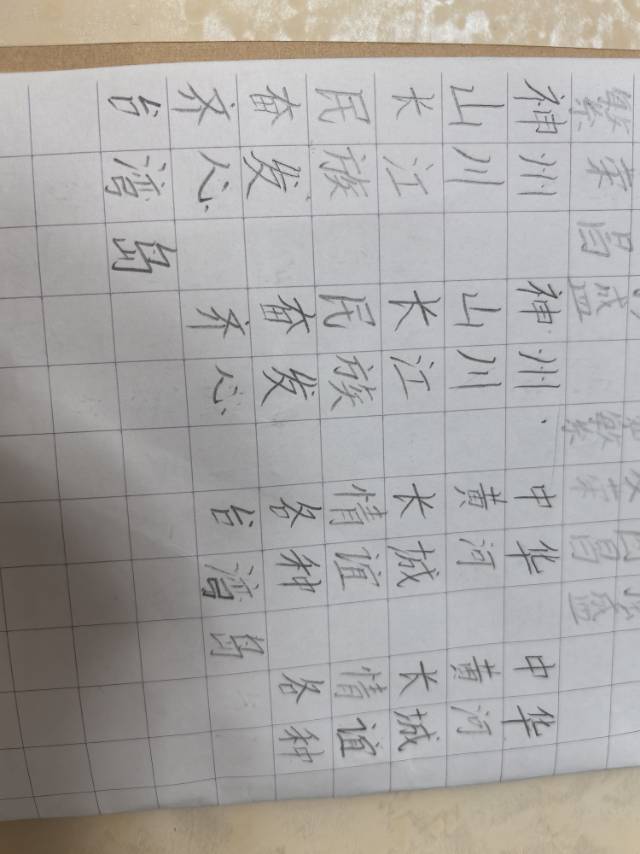 繁荣昌盛 繁荣昌盛
神州 神州 中华 中华
山川 山川 黄河 黄河
长江 长江 长城 长城
民族 民族 情谊 情谊
奋发 奋发 各种 各种
齐心 齐心 台湾岛
台湾岛